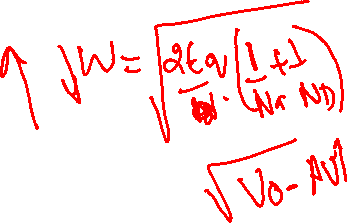 ↑ ↓W = √(2εq/. (1/Na + 1/ND))
√(V0 - AV)